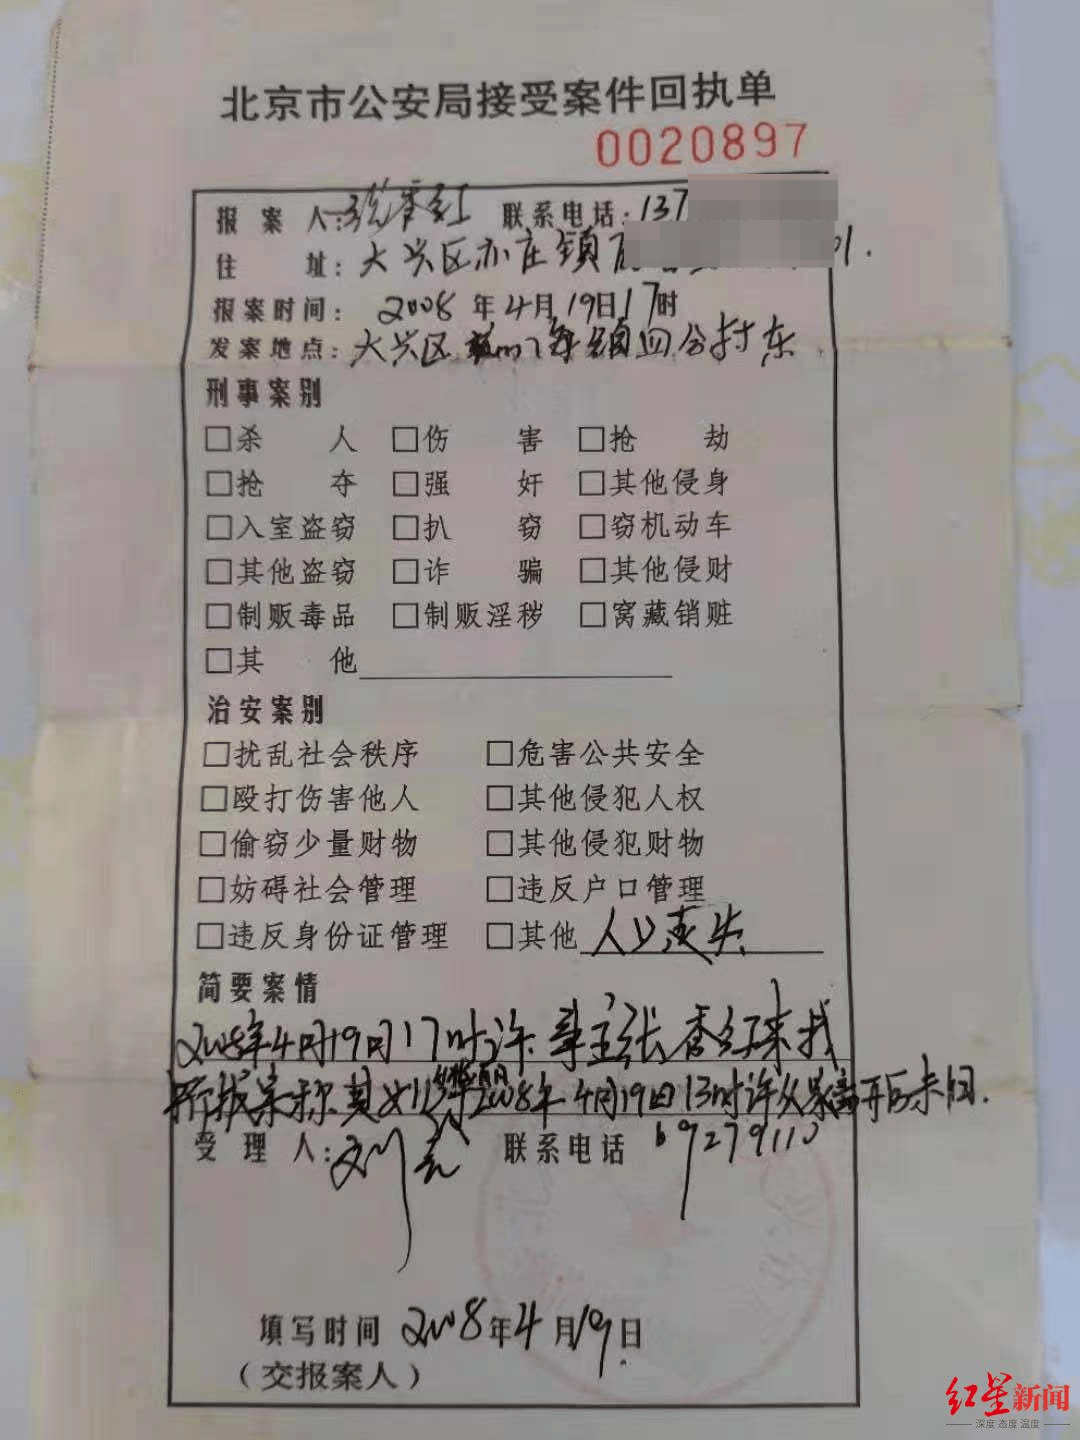 北京市公安局接受案件回执单
0020897
报案人:张香红 联系电话:137
住址:大兴区亦庄镇 01.
报案时间:2008年4月19日17时
发案地点:大兴区 镇四合村东
刑事案别
□杀人 □伤害 □抢劫
□抢夺 □强奸 □其他侵身
□入室盗窃 □扒窃 □窃机动车
□其他盗窃 □诈骗 □其他侵财
□制贩毒品 □制贩淫秽 □窝藏销赃
□其他
治安案别
□扰乱社会秩序 □危害公共安全
□殴打伤害他人 □其他侵犯人权
□偷窃少量财物 □其他侵犯财物
□妨碍社会管理 □违反户口管理
□违反身份证管理 □其他 人口走失
简要案情
2008年4月19日17时许事主张香红来我
所报案称其女儿 2008年4月19日13时许从家离开后未归.
受理人:刘 联系电话 69279110
填写时间 2008年4月19日
(交报案人)
红星新闻
深度 态度 温度